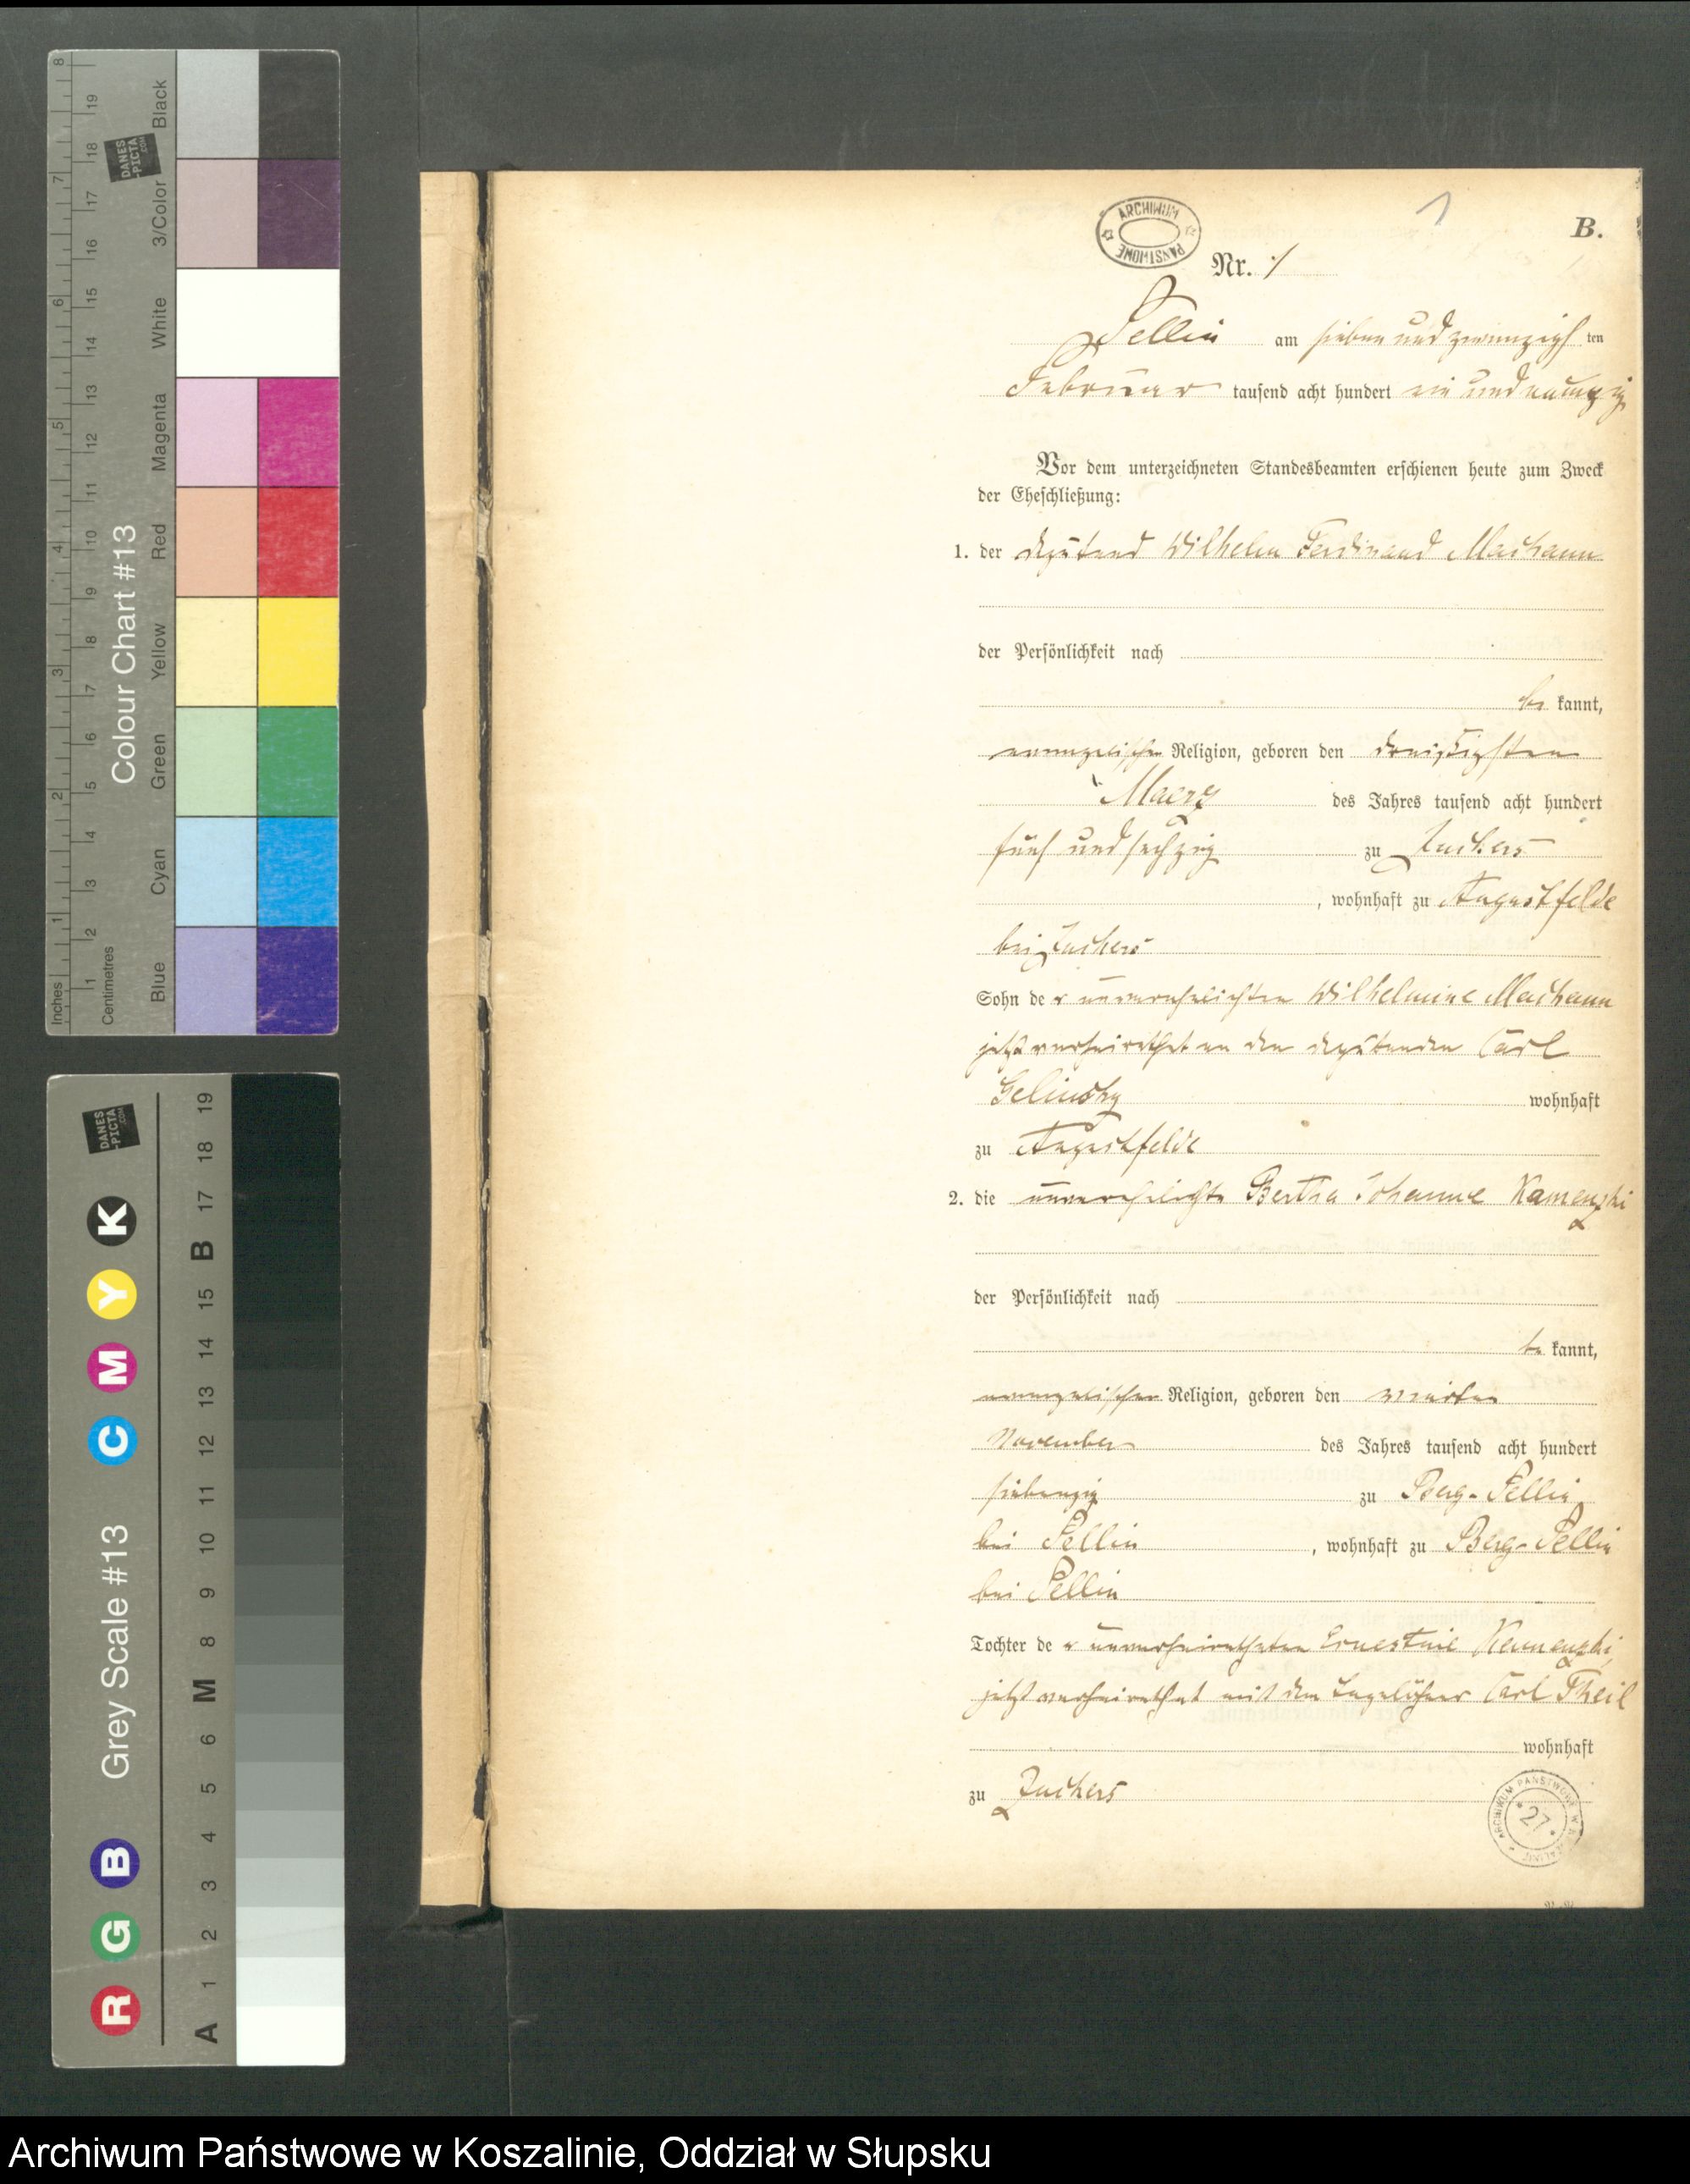 8
7
6
5
4
3
2
1
Inches
19
18
17
16
15
14
13
12
11
10
9
8
7
6
5
4
3
2
1
Centimetres
Colour Chart #13
DANES
-PICTA
.COM
Black
3/Color
White
Magenta
Red
Yellow
Green
Cyan
Blue
Grey Scale #13
DANES
-PICTA
.COM
K
Y
M
C
B
G
R
19
18
17
B
15
14
13
12
11
10
9
8
M
6
5
4
3
2
1
A
1
B.
ARCHIWUM PAŃSTWOWE
Nr. 1
Sellin am sieben und zwanzigsten
Februar tausend acht hundert ein und neunzig
Vor dem unterzeichneten Standesbeamten erschienen heute zum Zweck
der Eheschließung:
1. der Deputand Wilhelm Ferdinand Machann
der Persönlichkeit nach
be kannt,
evangelischer Religion, geboren den dreißigsten
Maerz des Jahres tausend acht hundert
fünf und sechzig zu Zuckers
, wohnhaft zu Augustfelde
bei Zuckers
Sohn der unverehelichten Wilhelmine Machann
jetzt verheirathet an den Deputanden Carl
Gelinsky wohnhaft
zu Augustfelde
2. die unverehelichte Bertha Johanne Kamenzki
der Persönlichkeit nach
be kannt,
evangelischer Religion, geboren den
November des Jahres tausend acht hundert
siebenzig zu Berg-Sellin
bei Sellin, wohnhaft zu Berg-Sellin
bei Sellin
Tochter der unverheiratheten Ernestine Kamenzki,
jetzt verheirathet mit dem Tagelöhner Carl Theil
wohnhaft
zu Zuckers
ARCHIWUM PAŃSTWOWE W KOSZALINIE
* 27 *
Archiwum Państwowe w Koszalinie, Oddział w Słupsku